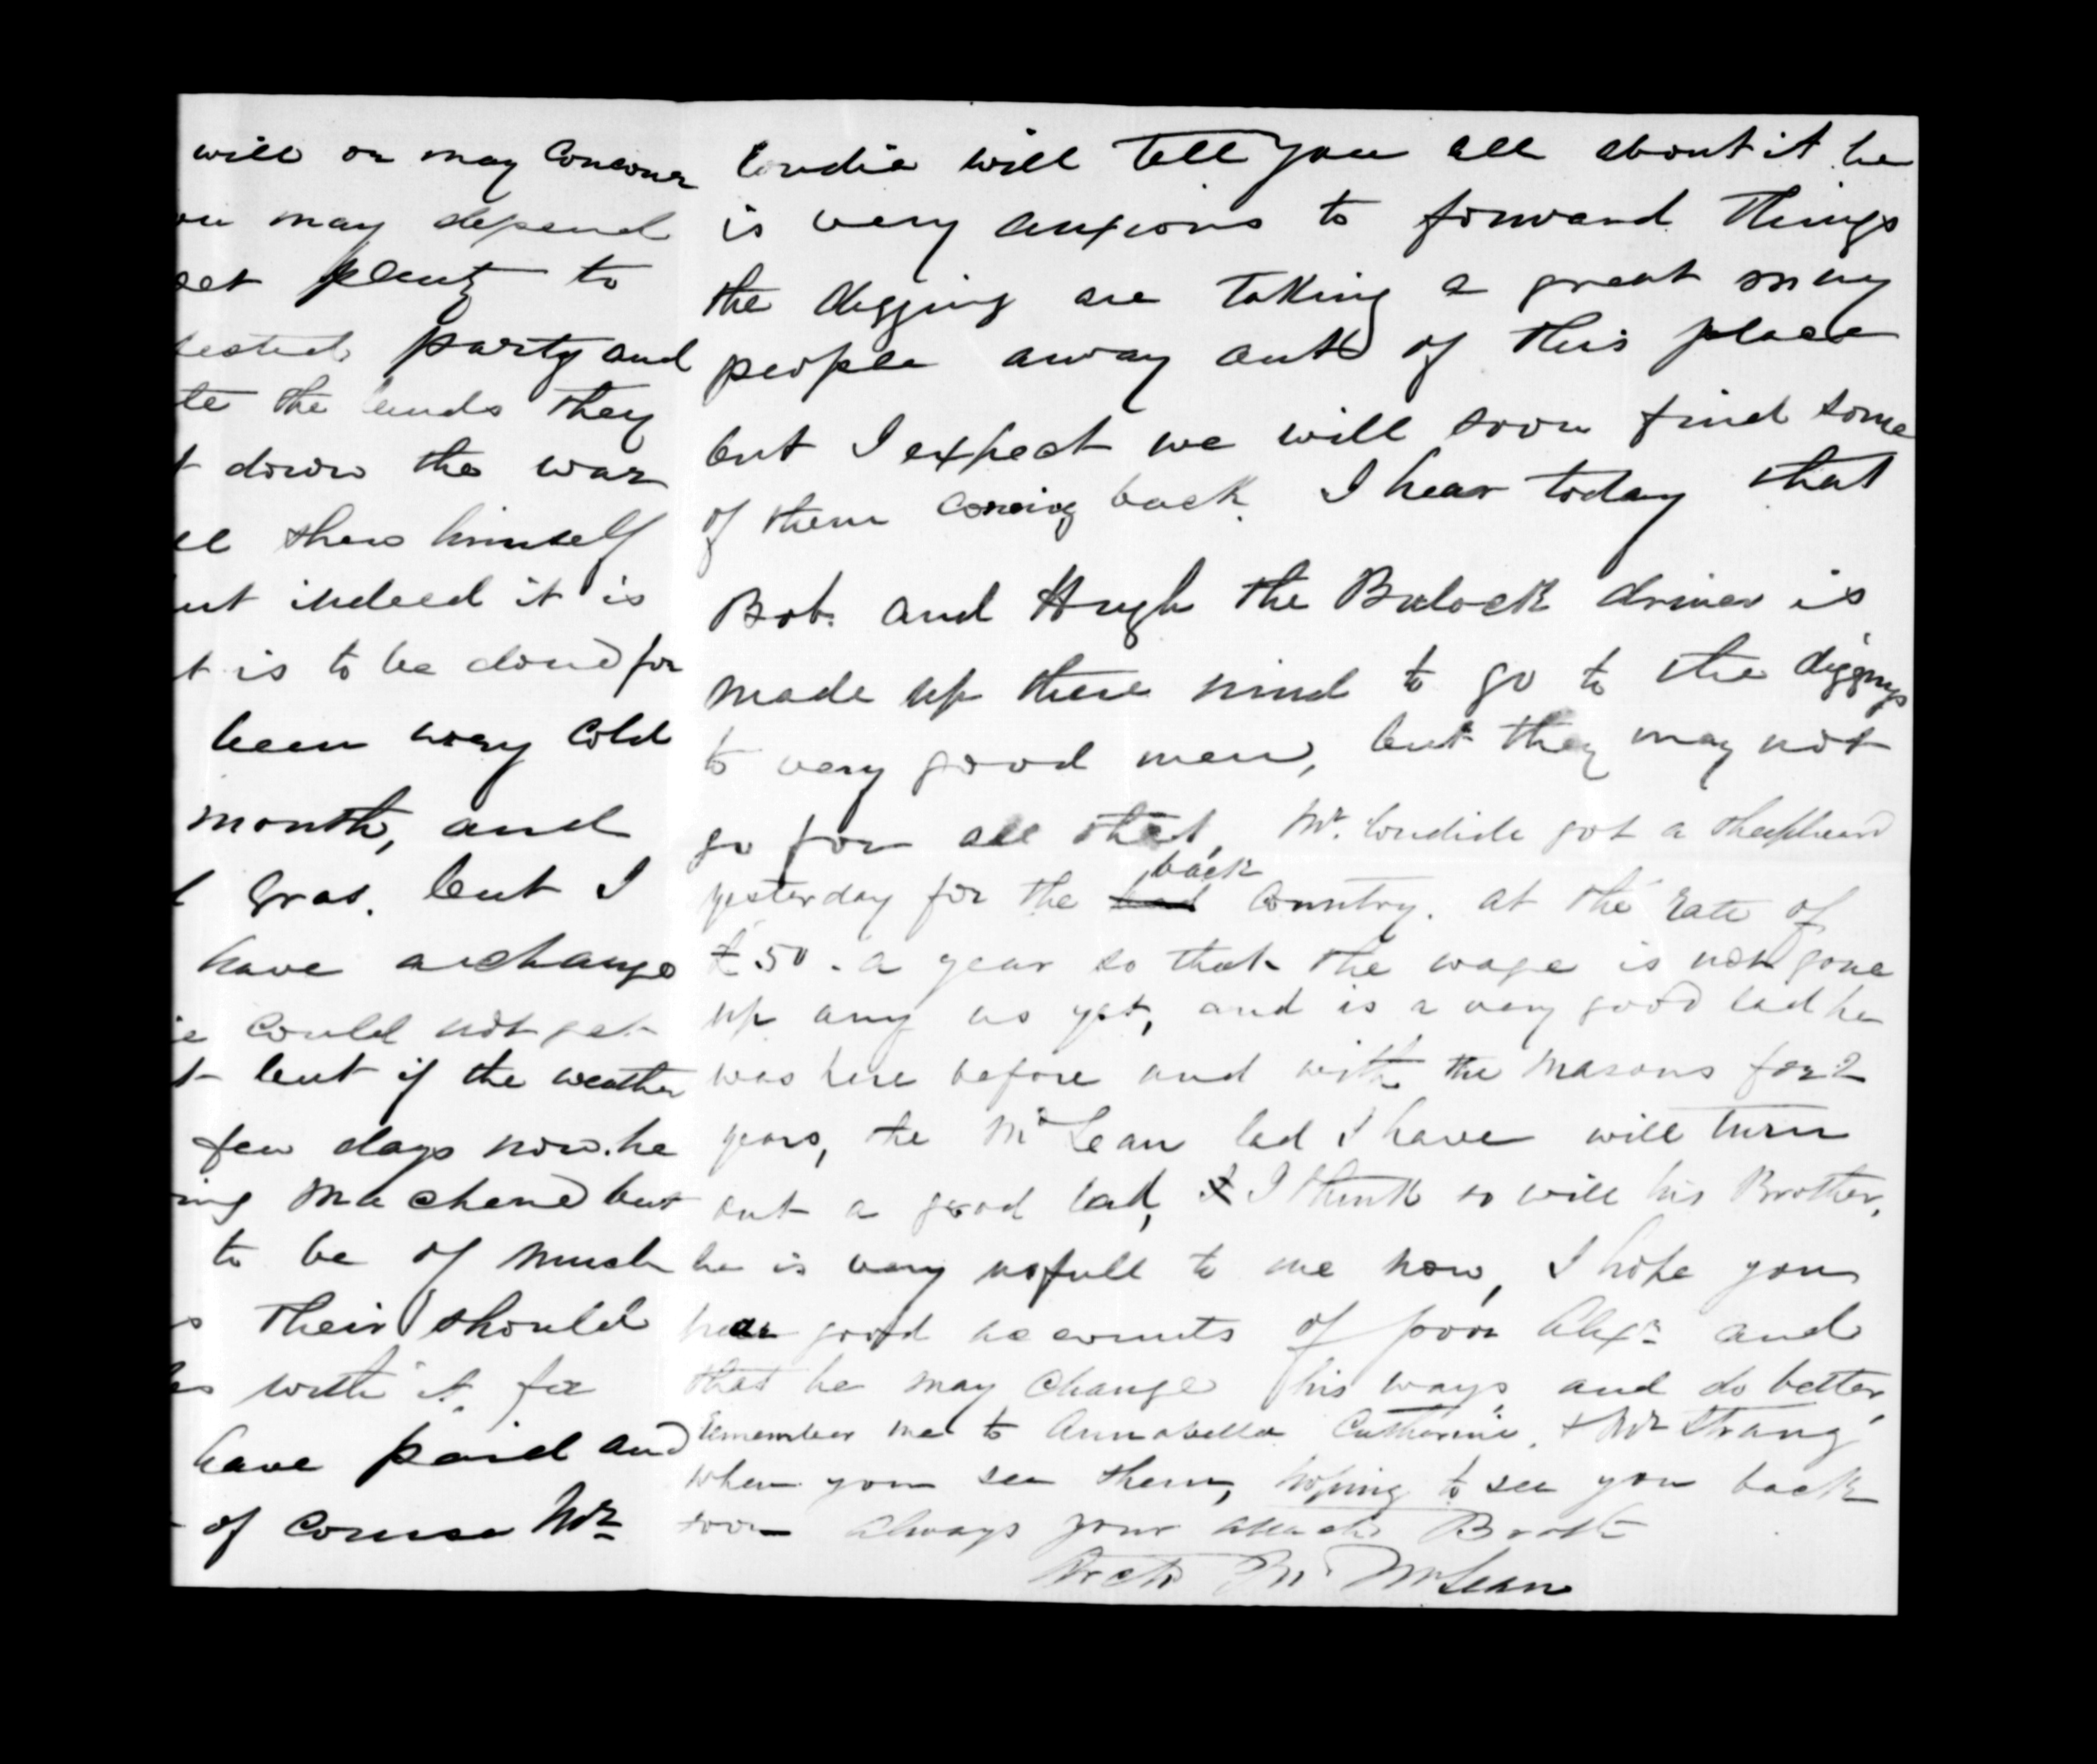 will or may Concour
ou may depend
get plenty to
rested party and
te the lands they
t down the war
ll shew himself
ut indeed it is
t is to be done for
been very Cold
month, and
Gras. but I
have a change
ie could not get
t but if the weather
few days now. he
ing Machene but
to be of much
Their should
with it. for
have paid and
of Course Mr
Condie will Tell you all about it he
is very anxious to forward Things
the digging are Taking a great many
people away out of This place
but I expect we will soon find some
of them Coming back. I hear today that
Bob. and Hugh the Bulock driver is
made up there mind to go to the diggings
to very good men, but they may not
go for all that, Mr. Condie got a shephard
yesterday for the back Country. at the rate of
£50. a year so that the wage is not gone
up any as yet, and is a very good lad he
was here before and with the Masons for 2
years, the McLean lad I have will turn
out a good lad, I think so will his Brother,
he is very usfull to me now, I hope you
hear good accounts of poor Alexr and
that he may Change his ways and do better,
Remember me to Annabella Catherine, & Mr Strang
when you see them, hoping to see you back
soon always your attach Broth
Archd McLean